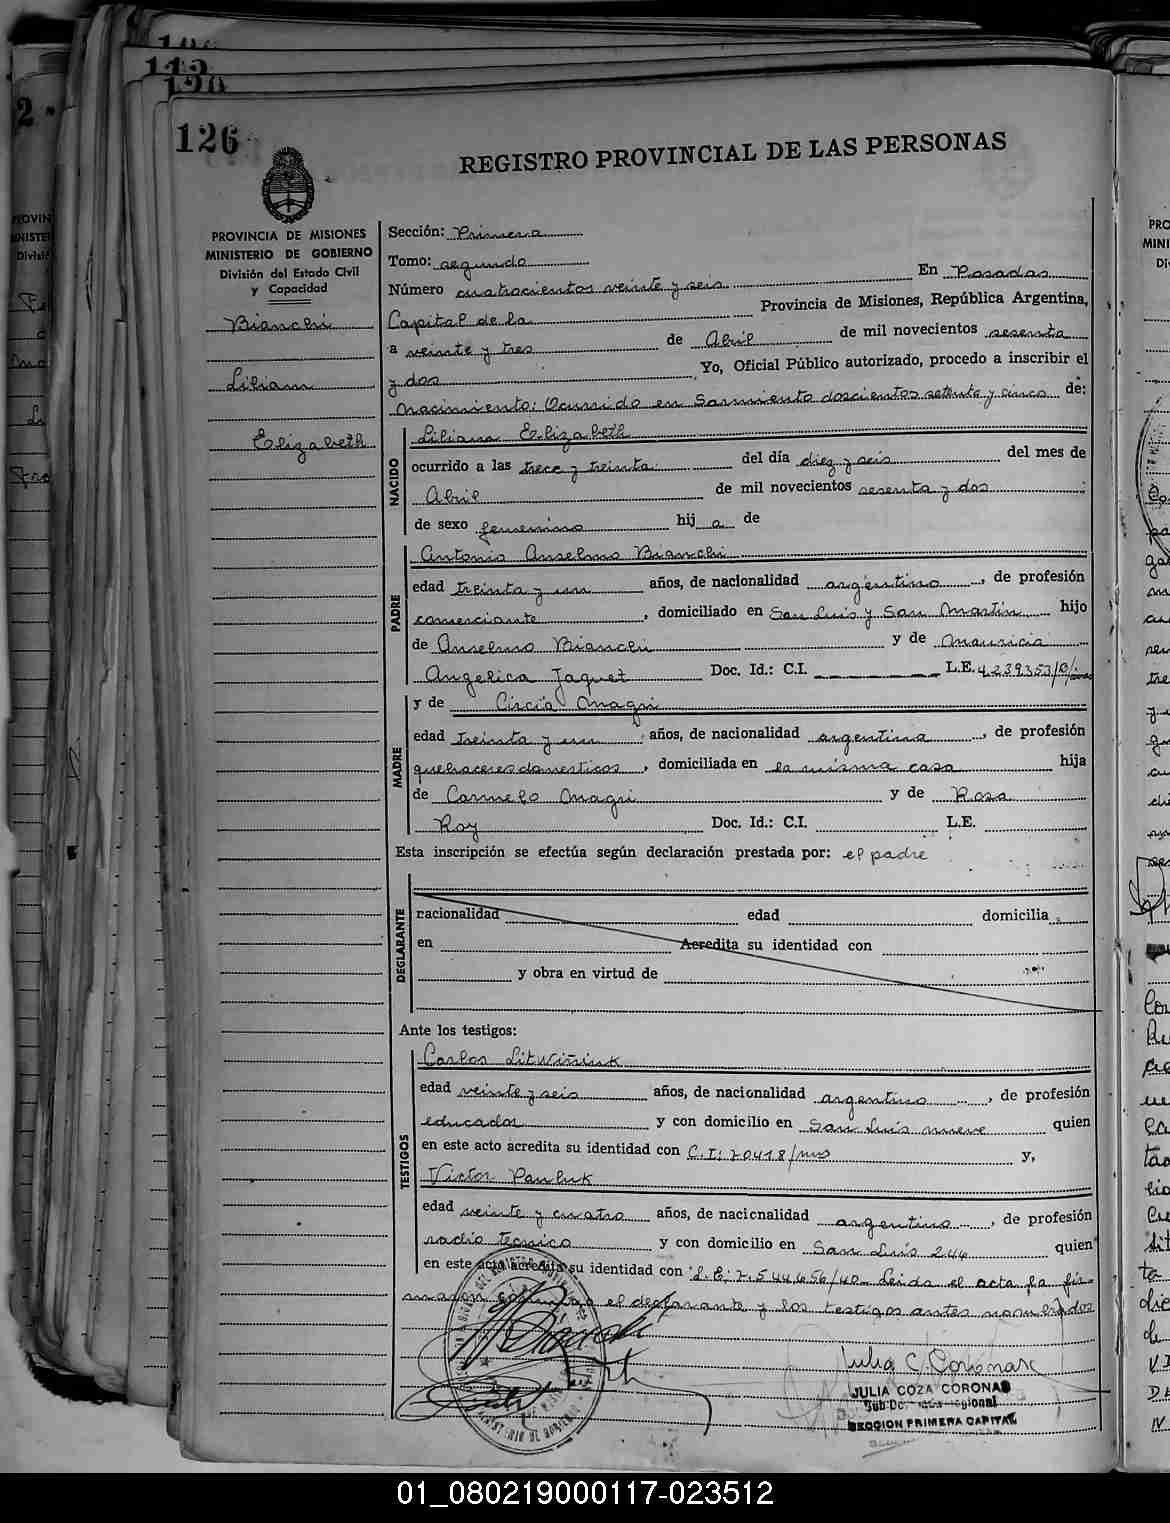 126
REGISTRO PROVINCIAL DE LAS PERSONAS
PROVINCIA DE MISIONES
MINISTERIO DE GOBIERNO
División del Estado Civil
y Capacidad
Bianchi
Lilian
Elizabeth
Sección: Primera
Tomo: segundo
Número cuatrocientos veinte y seis En Posadas
Capital de la Provincia de Misiones, República Argentina,
a veinte y tres de Abril de mil novecientos sesenta
y dos Yo, Oficial Público autorizado, procedo a inscribir el
nacimiento: Ocurrido en Sarmiento doscientos setenta y cinco de:
NACIDO
Liliana Elizabeth
ocurrido a las trece y treinta del día diez y seis del mes de
Abril de mil novecientos sesenta y dos
de sexo femenino hij a de
PADRE
Antonio Anselmo Bianchi
edad treinta y un años, de nacionalidad argentino, de profesión
comerciante, domiciliado en San Luis y San Martín hijo
de Anselmo Bianchi y de Mauricia
Angelica Jaquet Doc. Id.: C.I. L.E. 4239353
MADRE
y de Circia Magri
edad treinta y un años, de nacionalidad argentina, de profesión
quehaceres domesticos, domiciliada en la misma casa hija
de Carmelo Magri y de Rosa
Roy Doc. Id.: C.I. L.E.
Esta inscripción se efectúa según declaración prestada por: el padre
DECLARANTE
nacionalidad edad domicilia
en Acredita su identidad con
y obra en virtud de
Ante los testigos:
TESTIGOS
Carlos Litwiñiuk
edad veinte y seis años, de nacionalidad argentino, de profesión
educador y con domicilio en San Luis nueve quien
en este acto acredita su identidad con C.I: 20418/mns y,
Victor Pauluk
edad veinte y cuatro años, de nacionalidad argentino, de profesión
radio tecnico y con domicilio en San Luis 244 quien
en este acto acredita su identidad con L.E: 7.544.656/40 Leida el acta la fir-
maron conmigo el declarante y los testigos antes nombrados
Julia C. Coronas
JULIA COZA CORONAS
SECCION PRIMERA CAPITAL
01_080219000117-023512